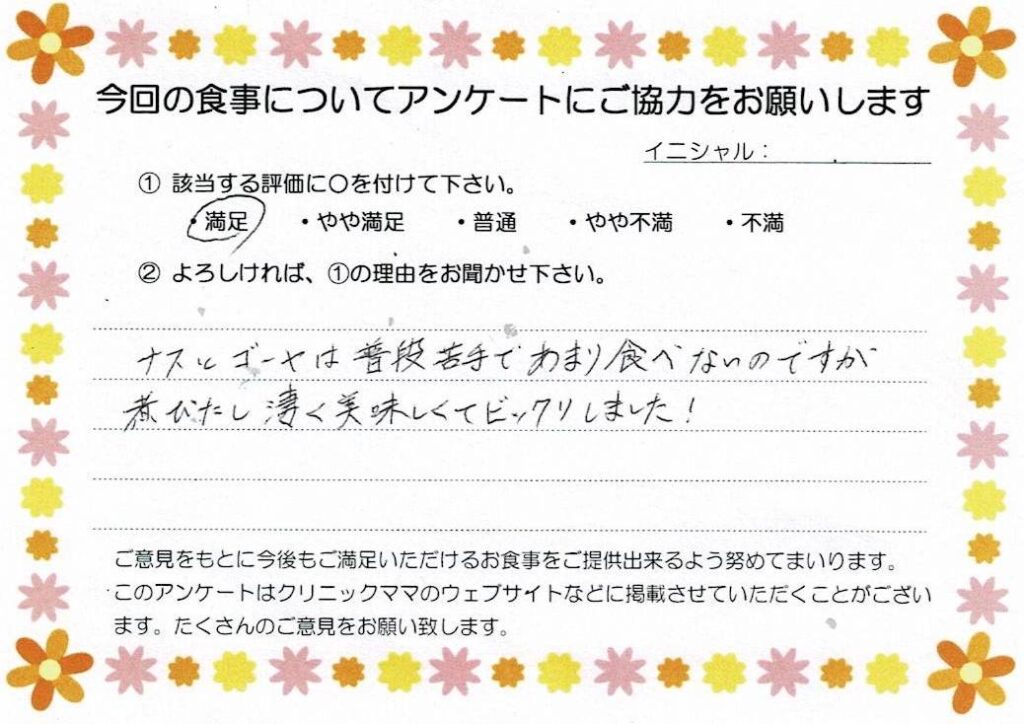 今回の食事についてアンケートにご協力をお願いします
イニシャル：
① 該当する評価に〇を付けて下さい。
・満足 ・やや満足 ・普通 ・やや不満 ・不満
② よろしければ、①の理由をお聞かせ下さい。
ナスとゴーヤは普段苦手であまり食べないのですが
煮びたし凄く美味しくてビックリしました！
ご意見をもとに今後もご満足いただけるお食事をご提供出来るよう努めてまいります。
このアンケートはクリニックママのウェブサイトなどに掲載させていただくことがござい
ます。たくさんのご意見をお願い致します。